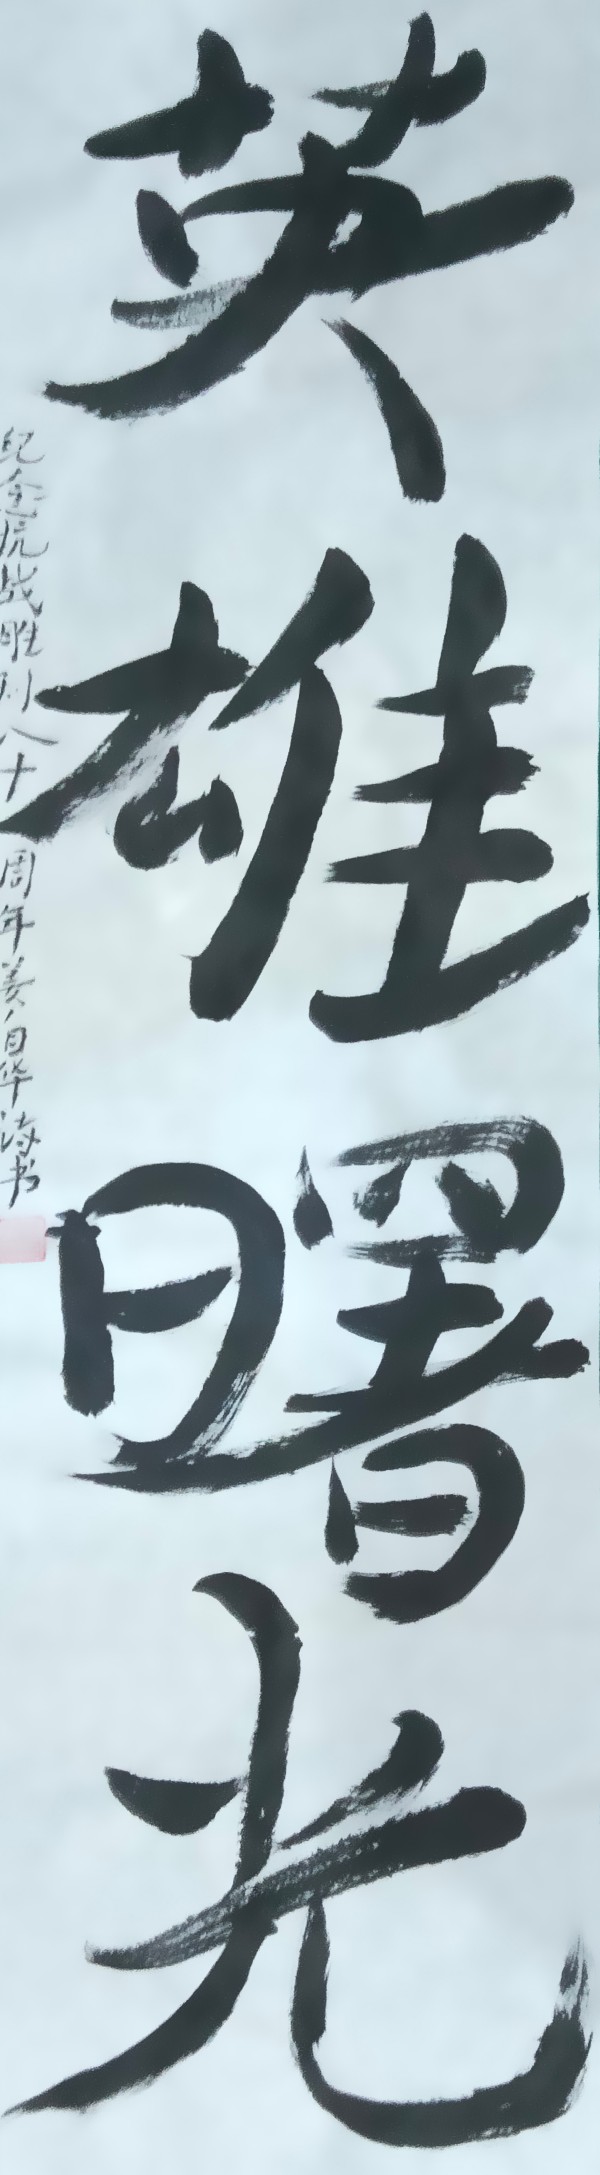 英雄曙光
纪念抗战胜利八十周年姜自华涛书